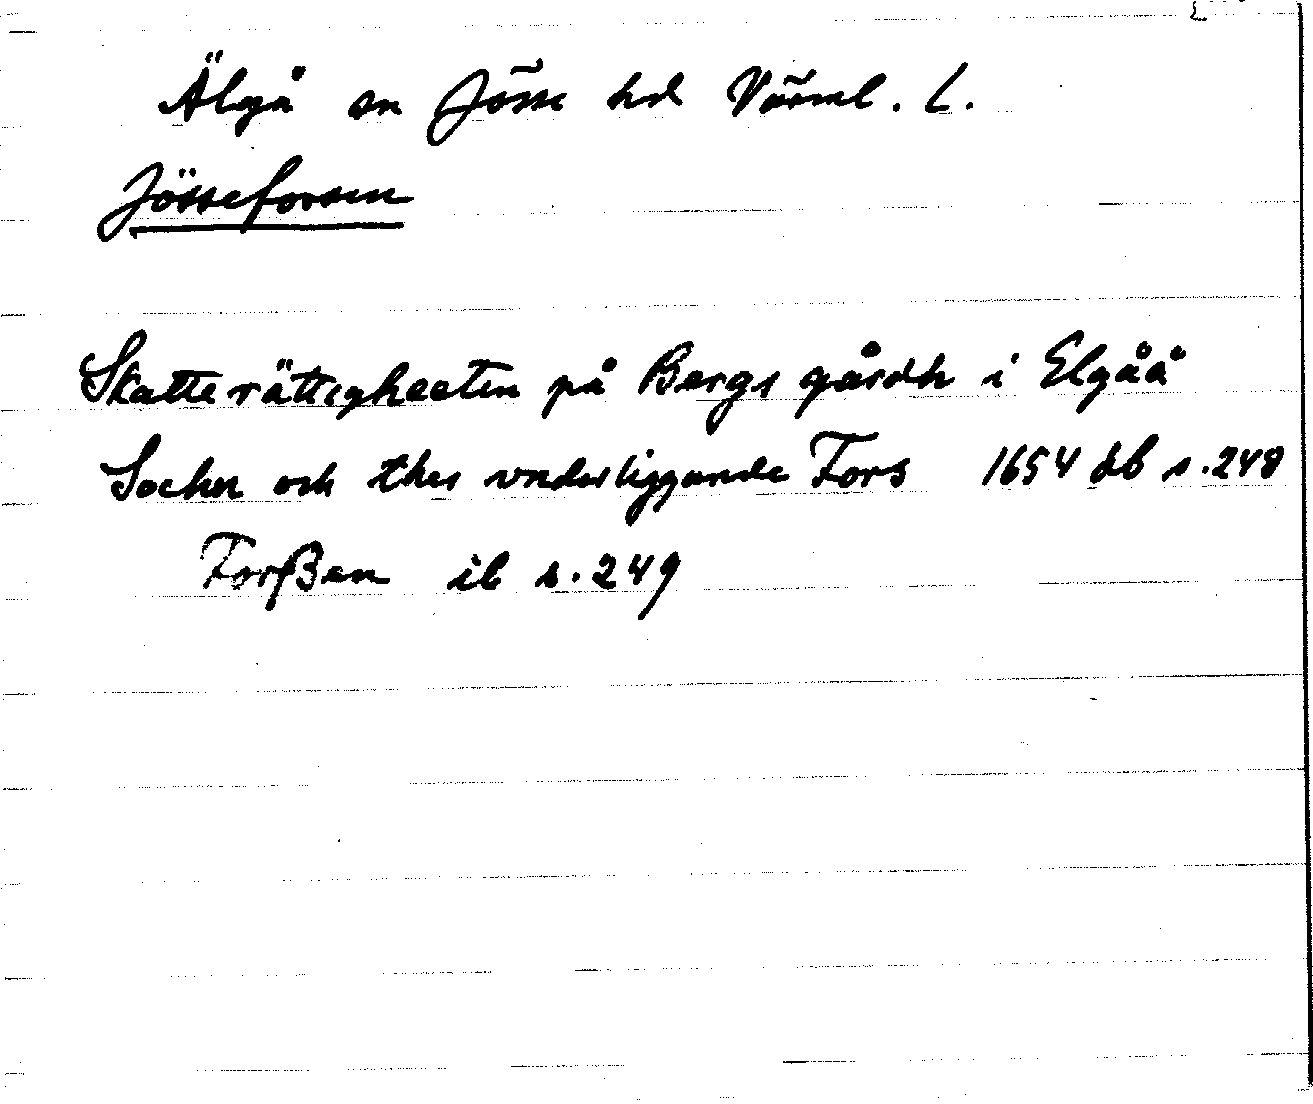 Älgå sn Jösse hd Värml. L.
Jösseforsen
Skatterättigheeten på Bergs gårdh i Elgåå
Sochn och thes vnderliggande Fors 1654 db s. 248
Forßen ib s. 249